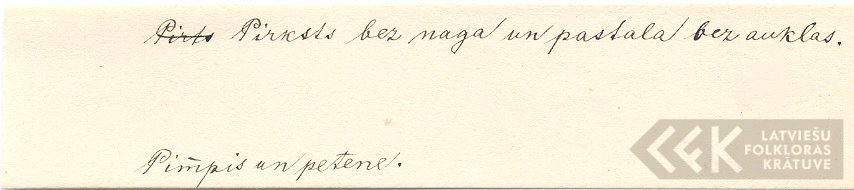 Pirts Pirksts bez naga un pastala bez auklas.
Pim̄pis un petene.
LFK
LATVIEŠU
FOLKLORAS
KRĀTUVE